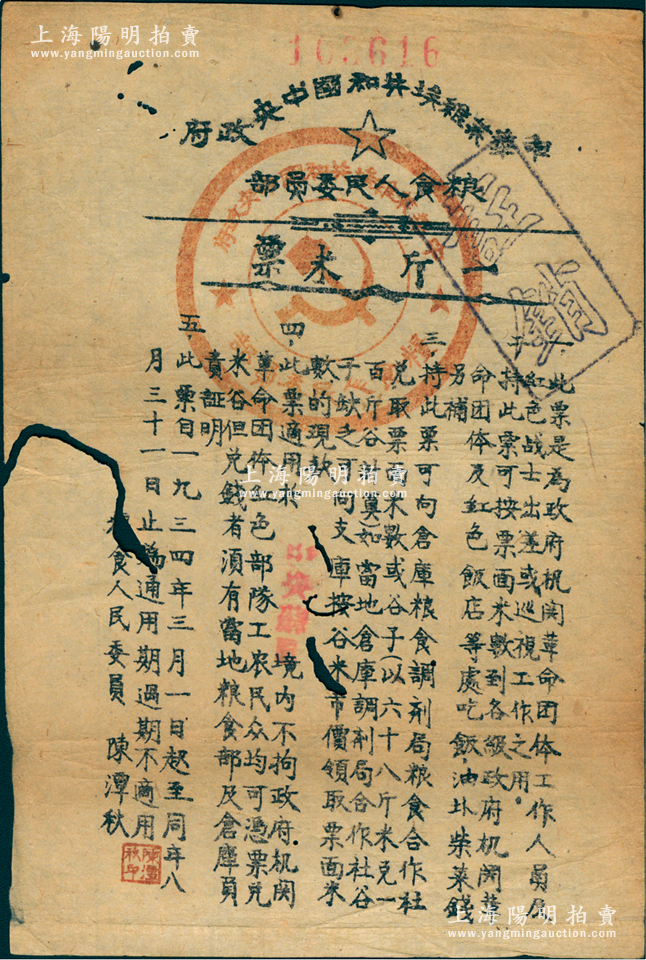 上海陽明拍賣
www.yangmingauction.com
103616
中華蘇維埃共和國中央政府
粮食人民委員部
一斤米票
一、此票是為政府机関革命团体工作人員及
紅色战士出差或巡視工作之用。
二、持此票可按票面米数到各級政府机関革
命团体及紅色飯店等處吃飯，油盐柴菜錢
另補
三、持此票可向倉庫粮食調剂局粮食合作社
兑取票面米数或谷子(以六十八斤米兑一
百斤谷計算)如當地倉庫調剂局合作社谷
子缺乏可向支庫按谷米市價領取票面米
数的現款
四、此票適用於 境内不拘政府机関
革命团体紅色部隊工农民众均可憑票兑
米谷但兑錢者須有當地粮食部及倉庫員
責証明
五、此票自一九三四年三月一日起至同年八
月三十一日止為通用期過期不適用
粮食人民委員 陳潭秋
陳潭秋印
上海陽明拍賣
www.yangmingauction.com
上海陽明拍賣
www.yangmingauction.com